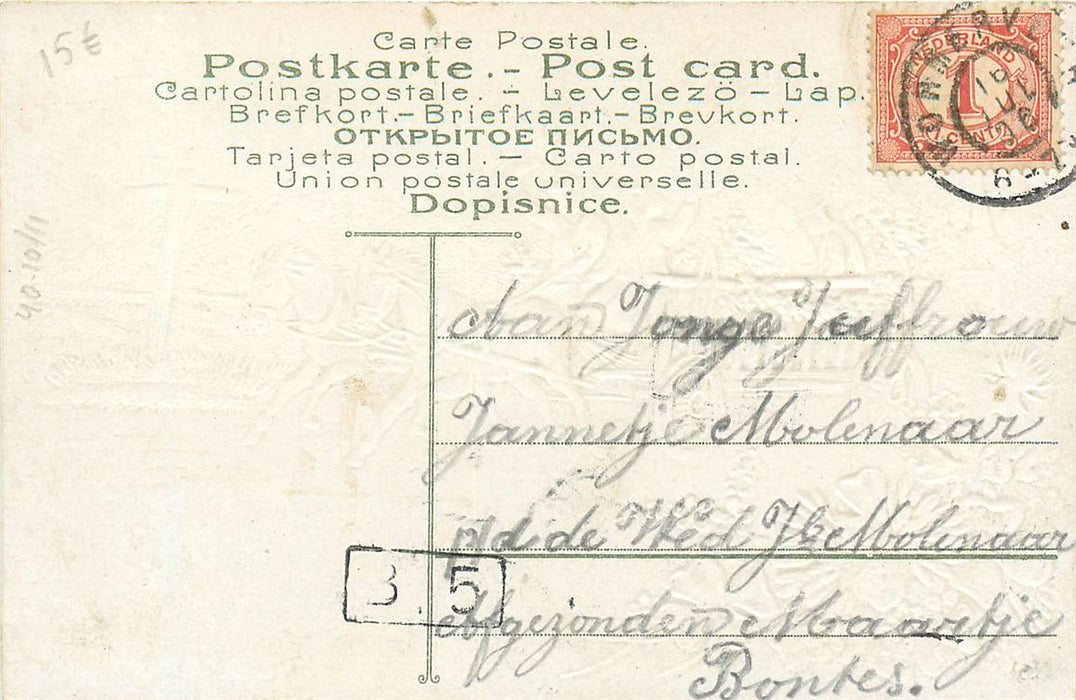 15€
Carte Postale.
Postkarte.- Post card.
Cartolina postale. - Levelezö - Lap.
Brefkort.- Briefkaart.- Brevkort.
ОТКРЫТОЕ ПИСЬМО.
Tarjeta postal. — Carto postal.
Union postale universelle.
Dopisnice.
NEDERLAND
1
CENT
8-
40-10/1
Aan Jonge Juffrouw
Jannetje Molenaar
p/d de Wed Molenaar
3.5
Afgezonden Maartje
Bontes.